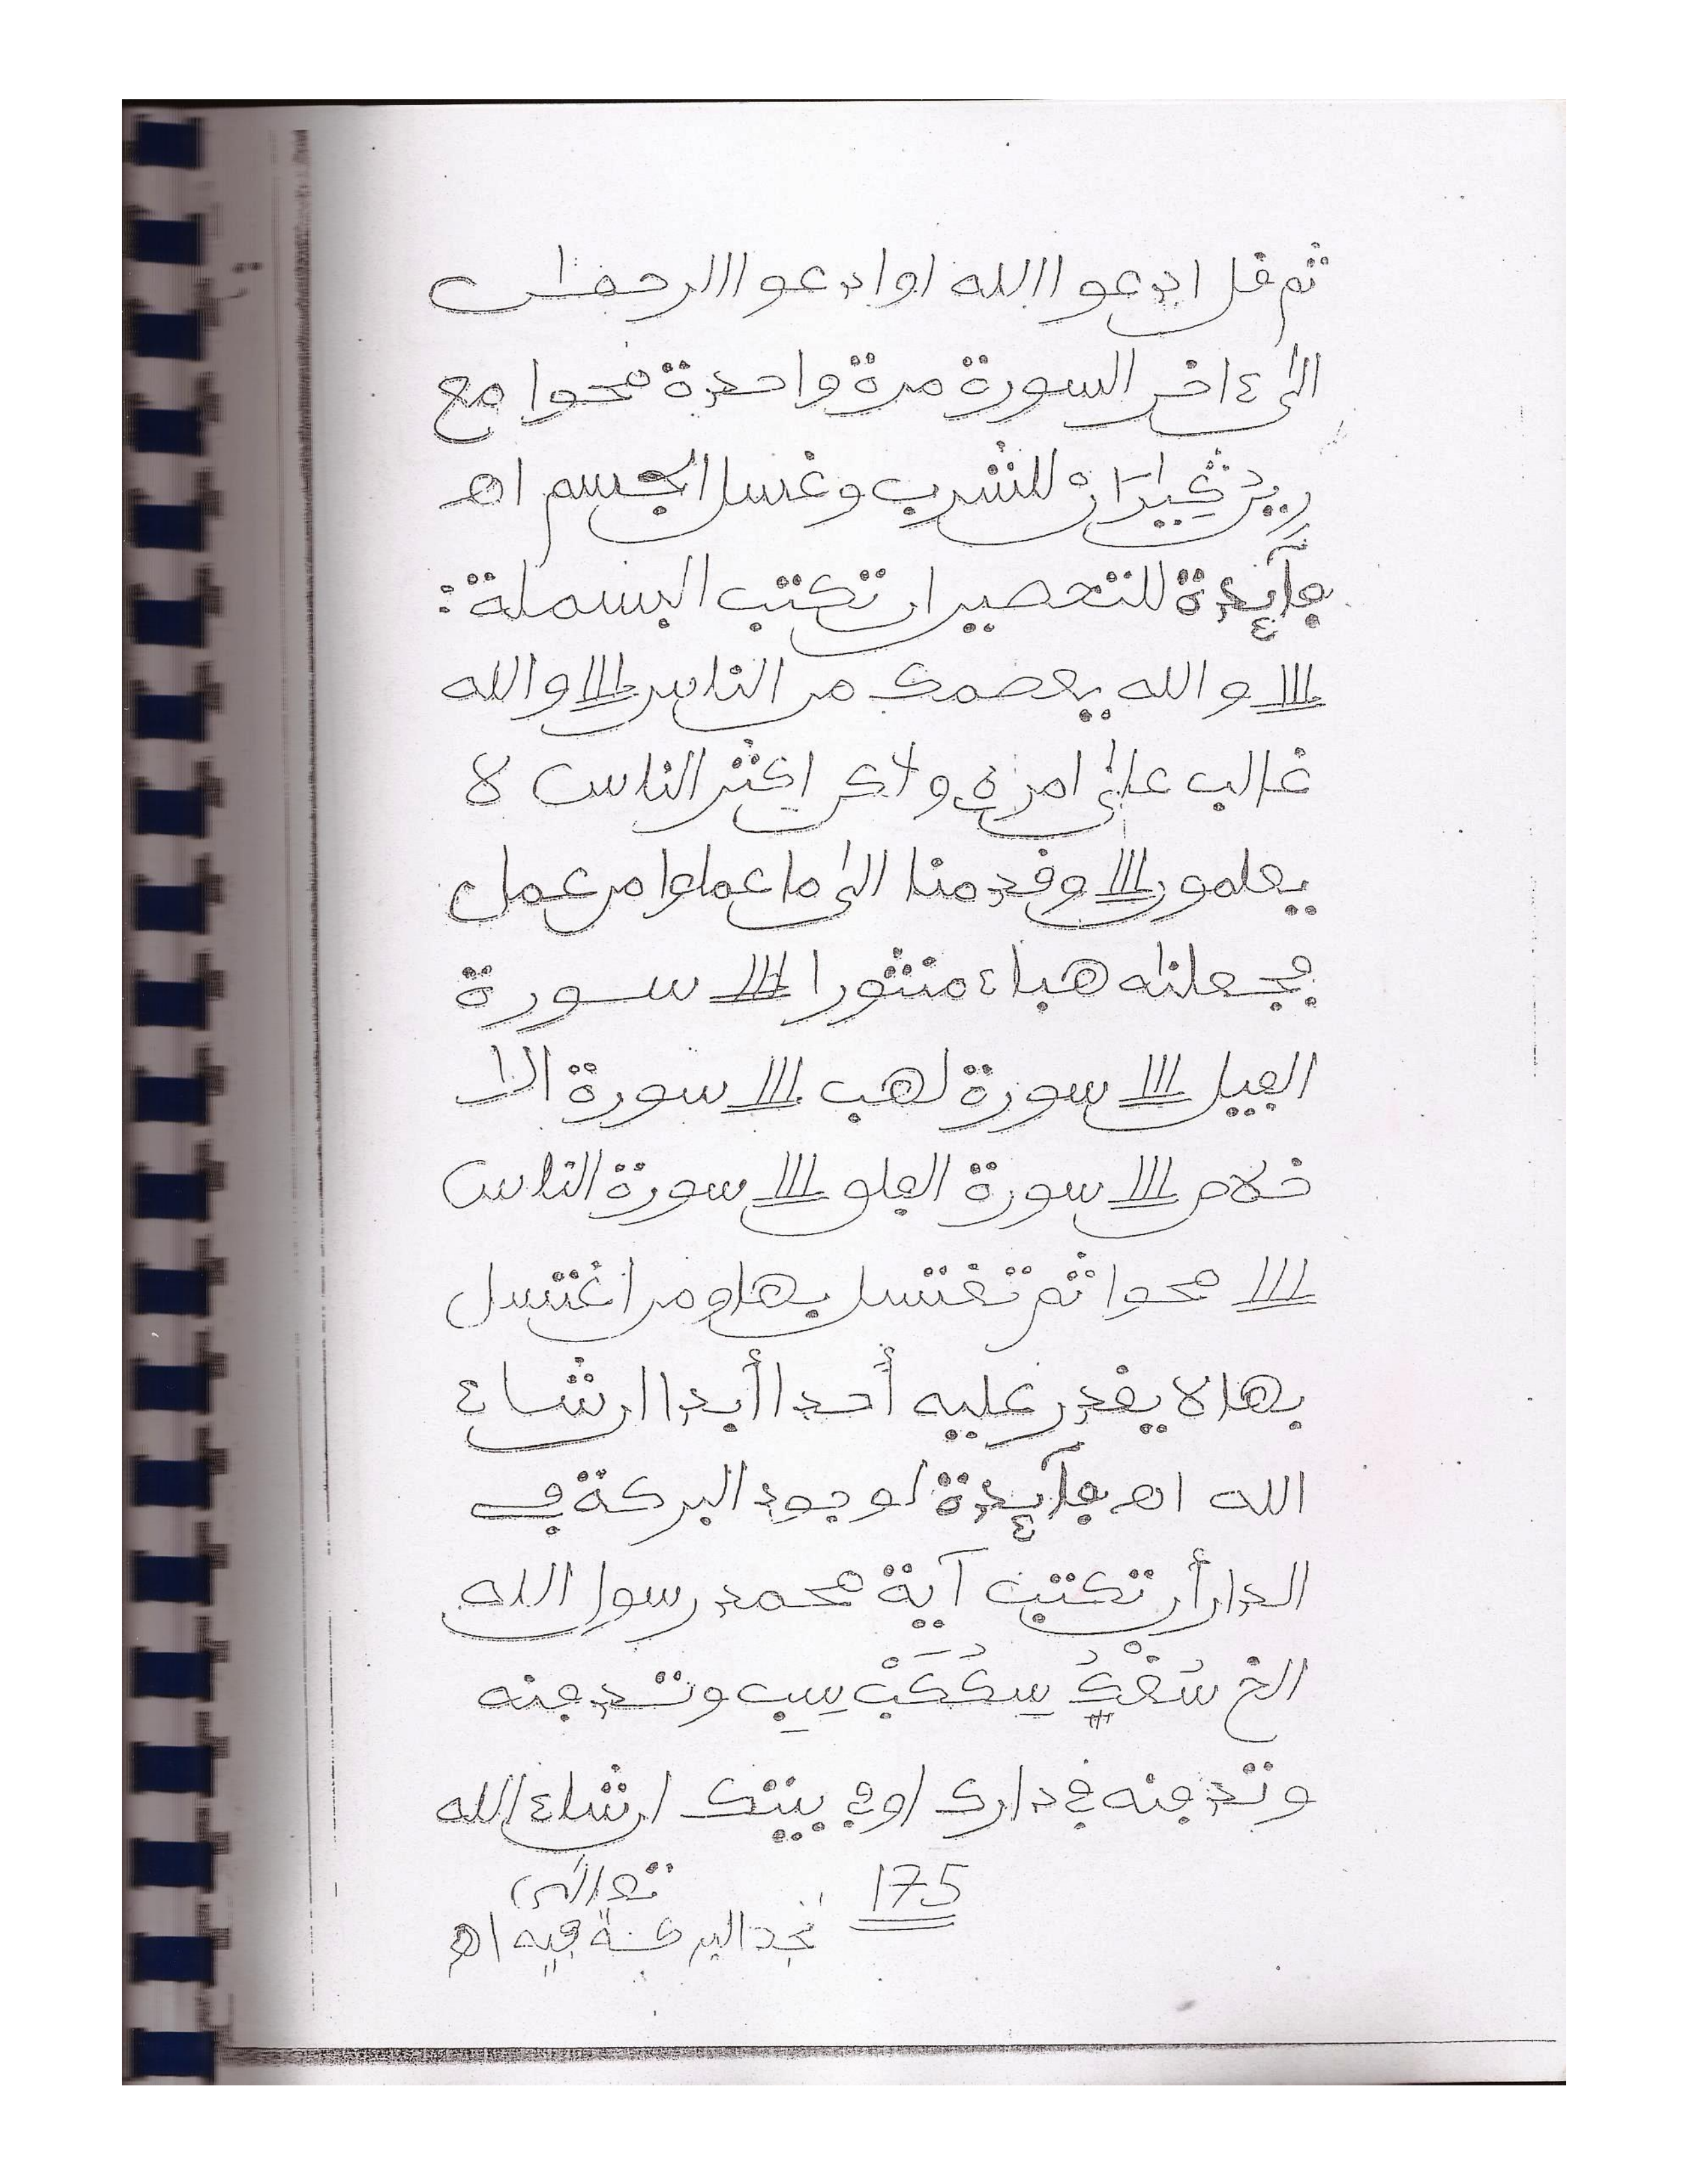 ثم قل ادعوا الله اوادعوا الرحمٰن
الى ءاخر السورة مرة واحدة محوا مع
للشرب وغسل الجسم اهـ
فآئدة للتحصين ان تكتب البسملة:
١١١ والله يعصمك من الناس ١١١ والله
غالب على امره ولاكن اكثر الناس لا
يعلمون ١١١ وقدمنا الى ما عملوا من عمل
فجعلنٰه هباء منثورا ١١١ سورة
الفيل ١١١ سورة لهب ١١١ سورة الا
خلاص ١١١ سورة الفلق ١١١ سورة الناس
١١١ محوا ثم تغتسل بها ومن اغتسل
بها لا يقدر عليه أحدا أبدا ان شاء
الله اهـ فآئدة لوجود البركة في
الدار أن تكتب آية محمد رسول الله
الخ وتدفنه
وتدفنه في دارك او في بيتك ان شاء الله
تعالى
175
تجد البركة فيه اهـ